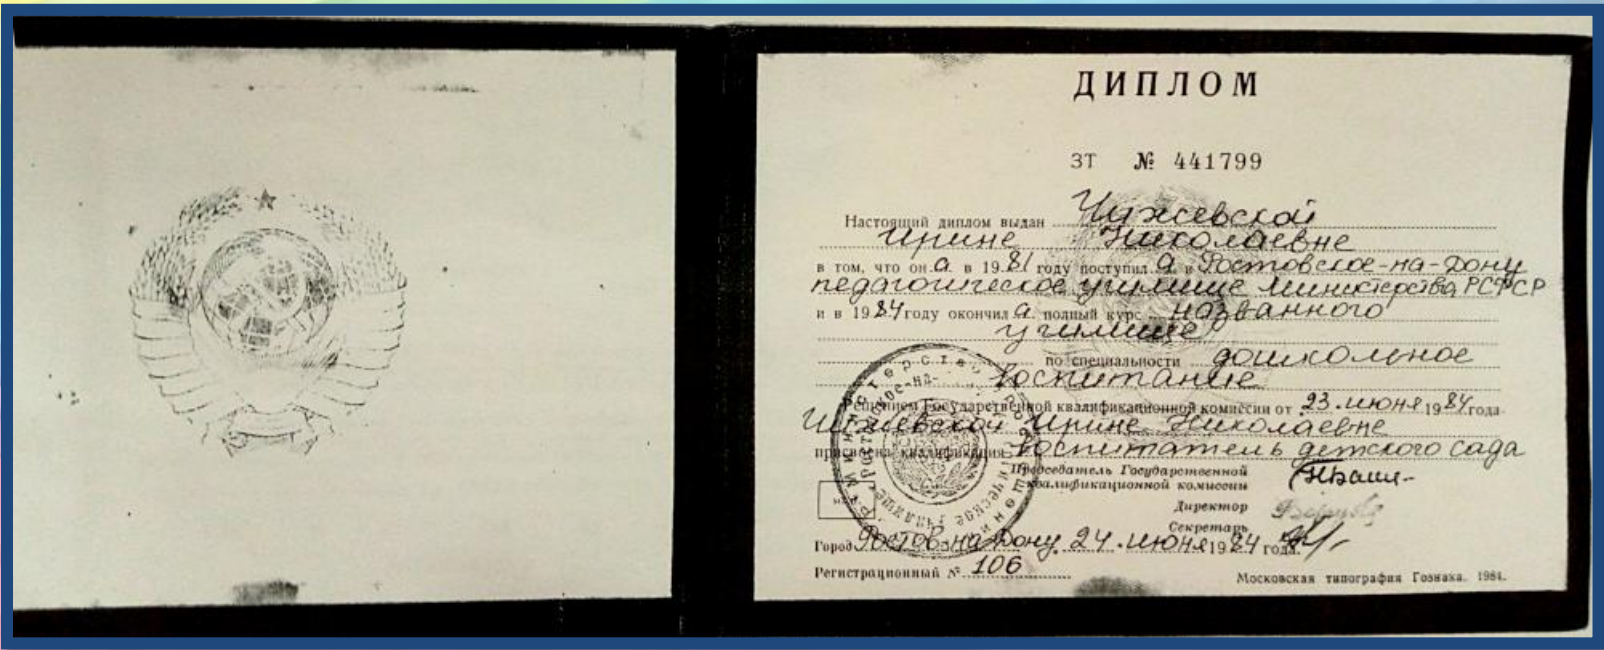 ДИПЛОМ
ЗТ № 441799
Настоящий диплом выдан Чижевской
Ирине Николаевне
в том, что она в 1981 году поступила в Ростовское-на-Дону
педагогическое училище Министерства РСФСР
и в 1984 году окончила полный курс названного
училища
по специальности дошкольное
воспитание
Решением Государственной квалификационной комиссии от 23 июня 1984 года
Чижевской Ирине Николаевне
присвоена квалификация воспитатель детского сада
Председатель Государственной
квалификационной комиссии
Директор
Секретарь
Город Ростов-на-Дону 24 июня 1984 года.
Регистрационный № 106
Московская типография Гознака. 1984.